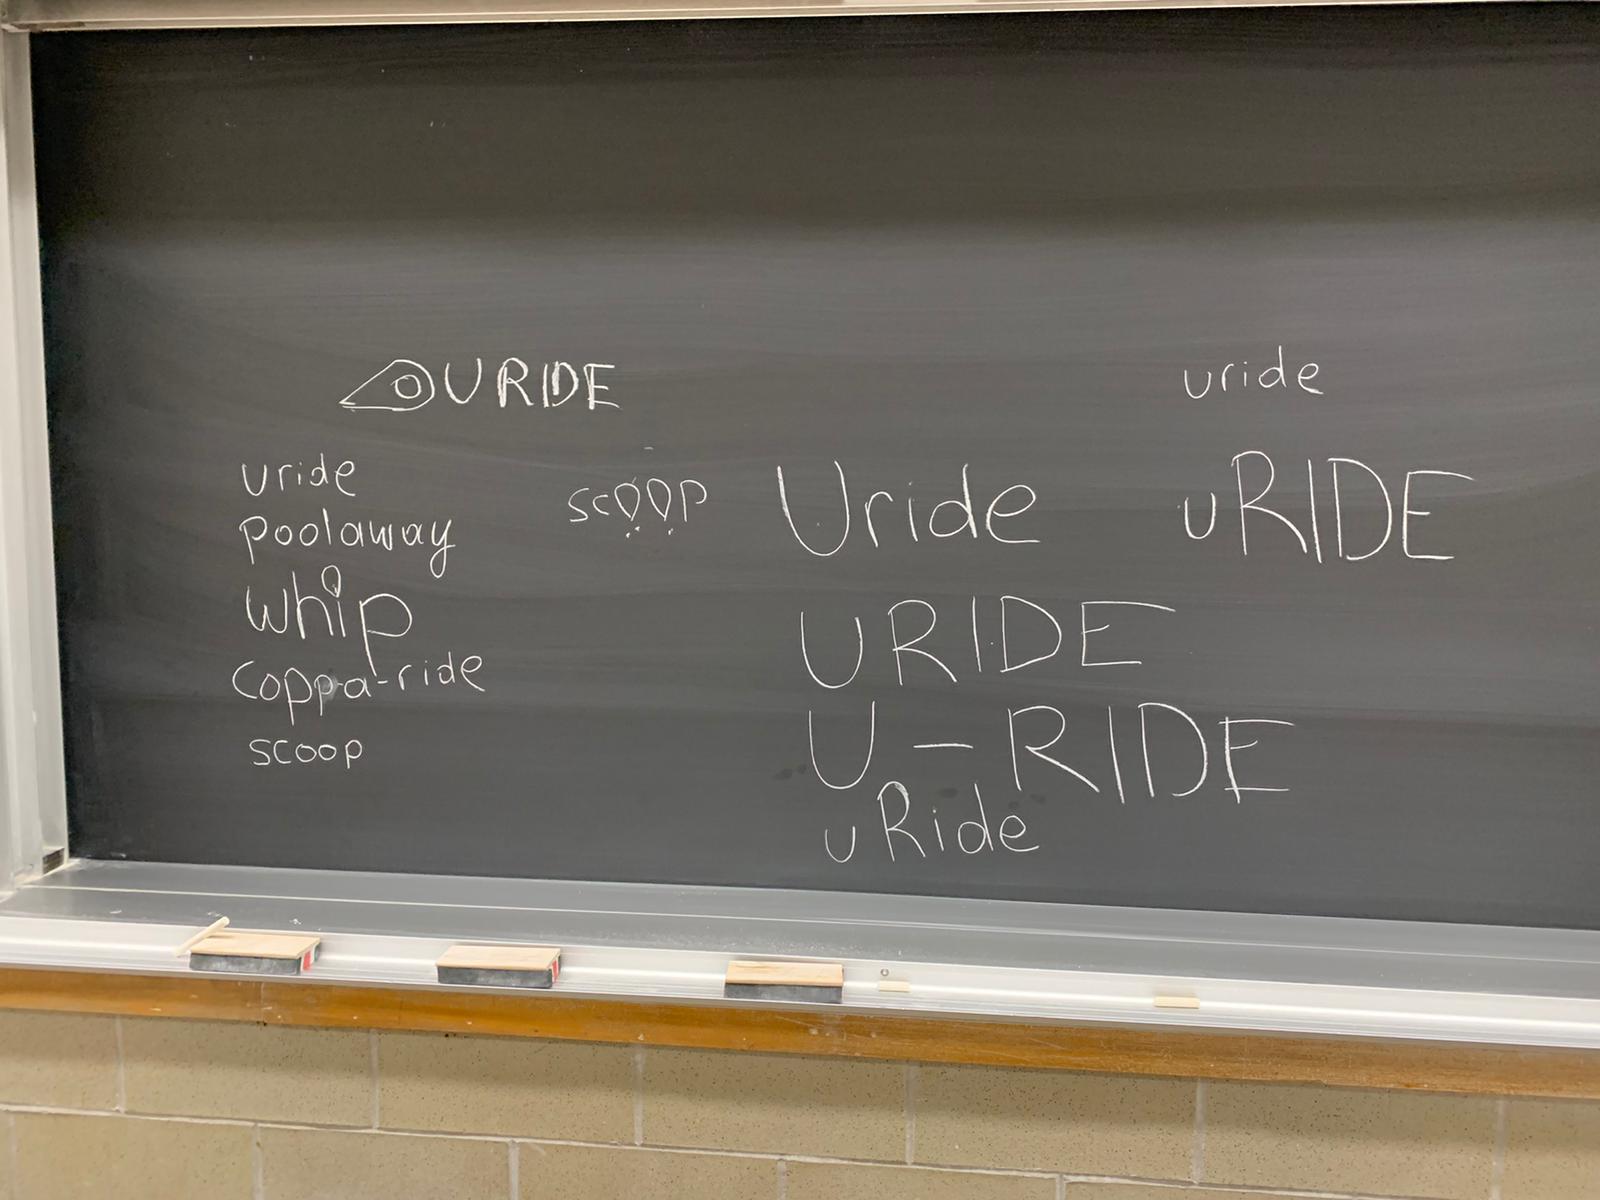 URIDE
uride
poolaway
whip
coppa-ride
scoop
scoop
Uride
URIDE
U-RIDE
uRide
uride
uRIDE